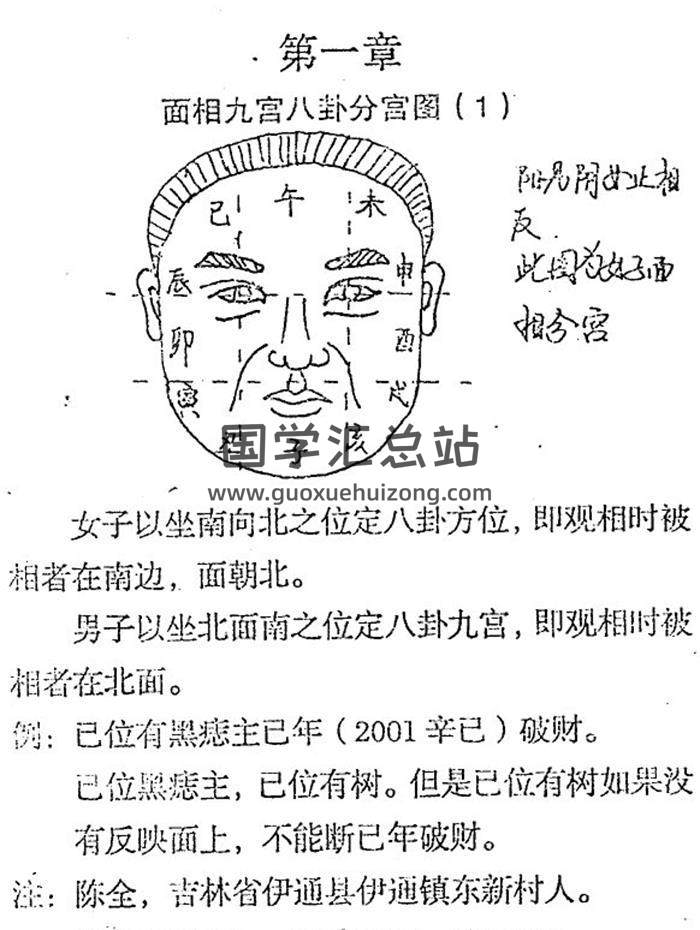 第一章
面相九宫八卦分宫图（1）
巳 午 未
辰 申
卯 酉
寅 戌
丑 子 亥
反.
此图为女子面
相分宫
国学汇总站
www.guoxuehuizong.com
女子以坐南向北之位定八卦方位，即观相时被
相者在南边，面朝北。
男子以坐北面南之位定八卦九宫，即观相时被
相者在北面。
例：巳位有黑痣主巳年（2001辛巳）破财。
巳位黑痣主，巳位有树。但是巳位有树如果没
有反映面上，不能断巳年破财。
注：陈全，吉林省伊通县伊通镇东新村人。